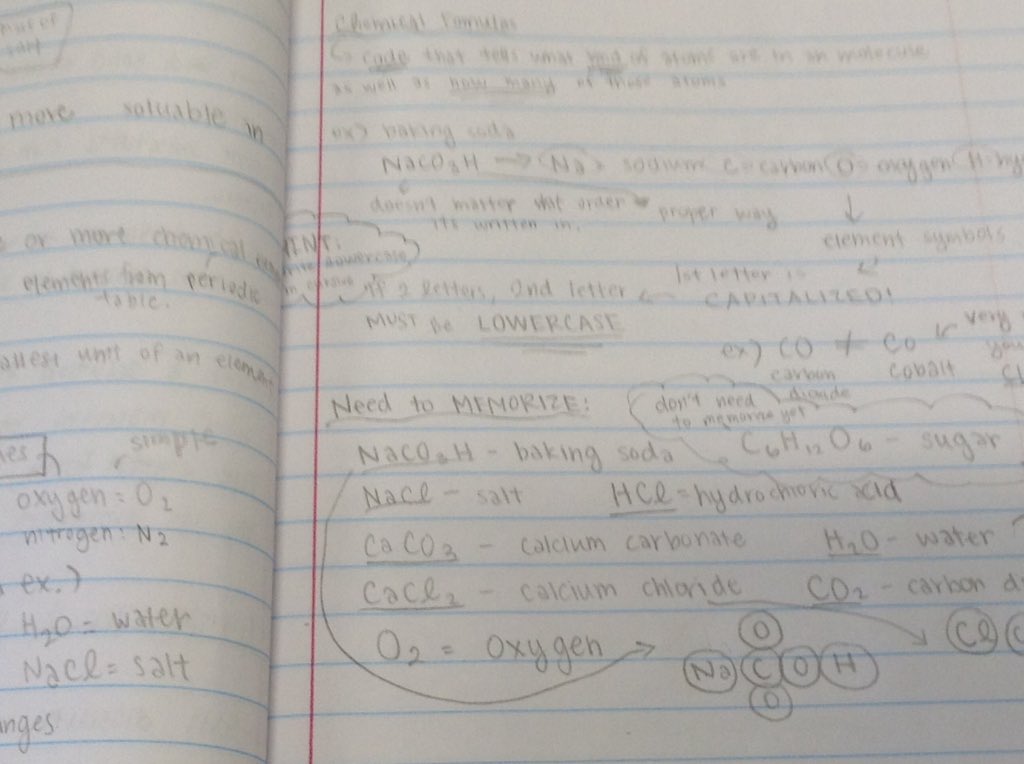 part of
salt
more soluable in
or more chemical
elements from periodic
table.
allest unit of an element
simple
oxygen = O2
nitrogen: N2
ex.)
H2O = water
NaCl = salt
anges
Chemical Formulas
↳ code that tells what kind of atoms are in an molecule
as well as how many of those atoms
ex) baking soda
NaCO3H → Na = sodium C = carbon O = oxygen H = hy
doesn't matter what order
its written in.
proper way
↓
element symbols
HINT:
1st letter is
CAPITALIZED!
if 2 letters, 2nd letter ←
MUST be LOWERCASE
ex) CO ≠ Co
very
you
carbon
dioxide
cobalt
Need to MEMORIZE:
don't need
to memorize yet
NaCO3H - baking soda
C6H12O6 - sugar
NaCl - salt
HCl = hydrochloric acid
CaCO3 - calcium carbonate
H2O - water
CaCl2 - calcium chloride
CO2 - carbon d
O2 = oxygen →
O
Na C O H
O
Cl